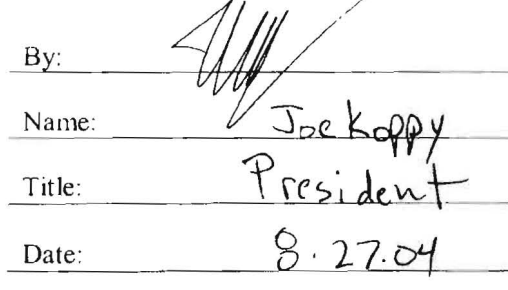 By:
Name: Joe Koppy
Title: President
Date: 8.27.04